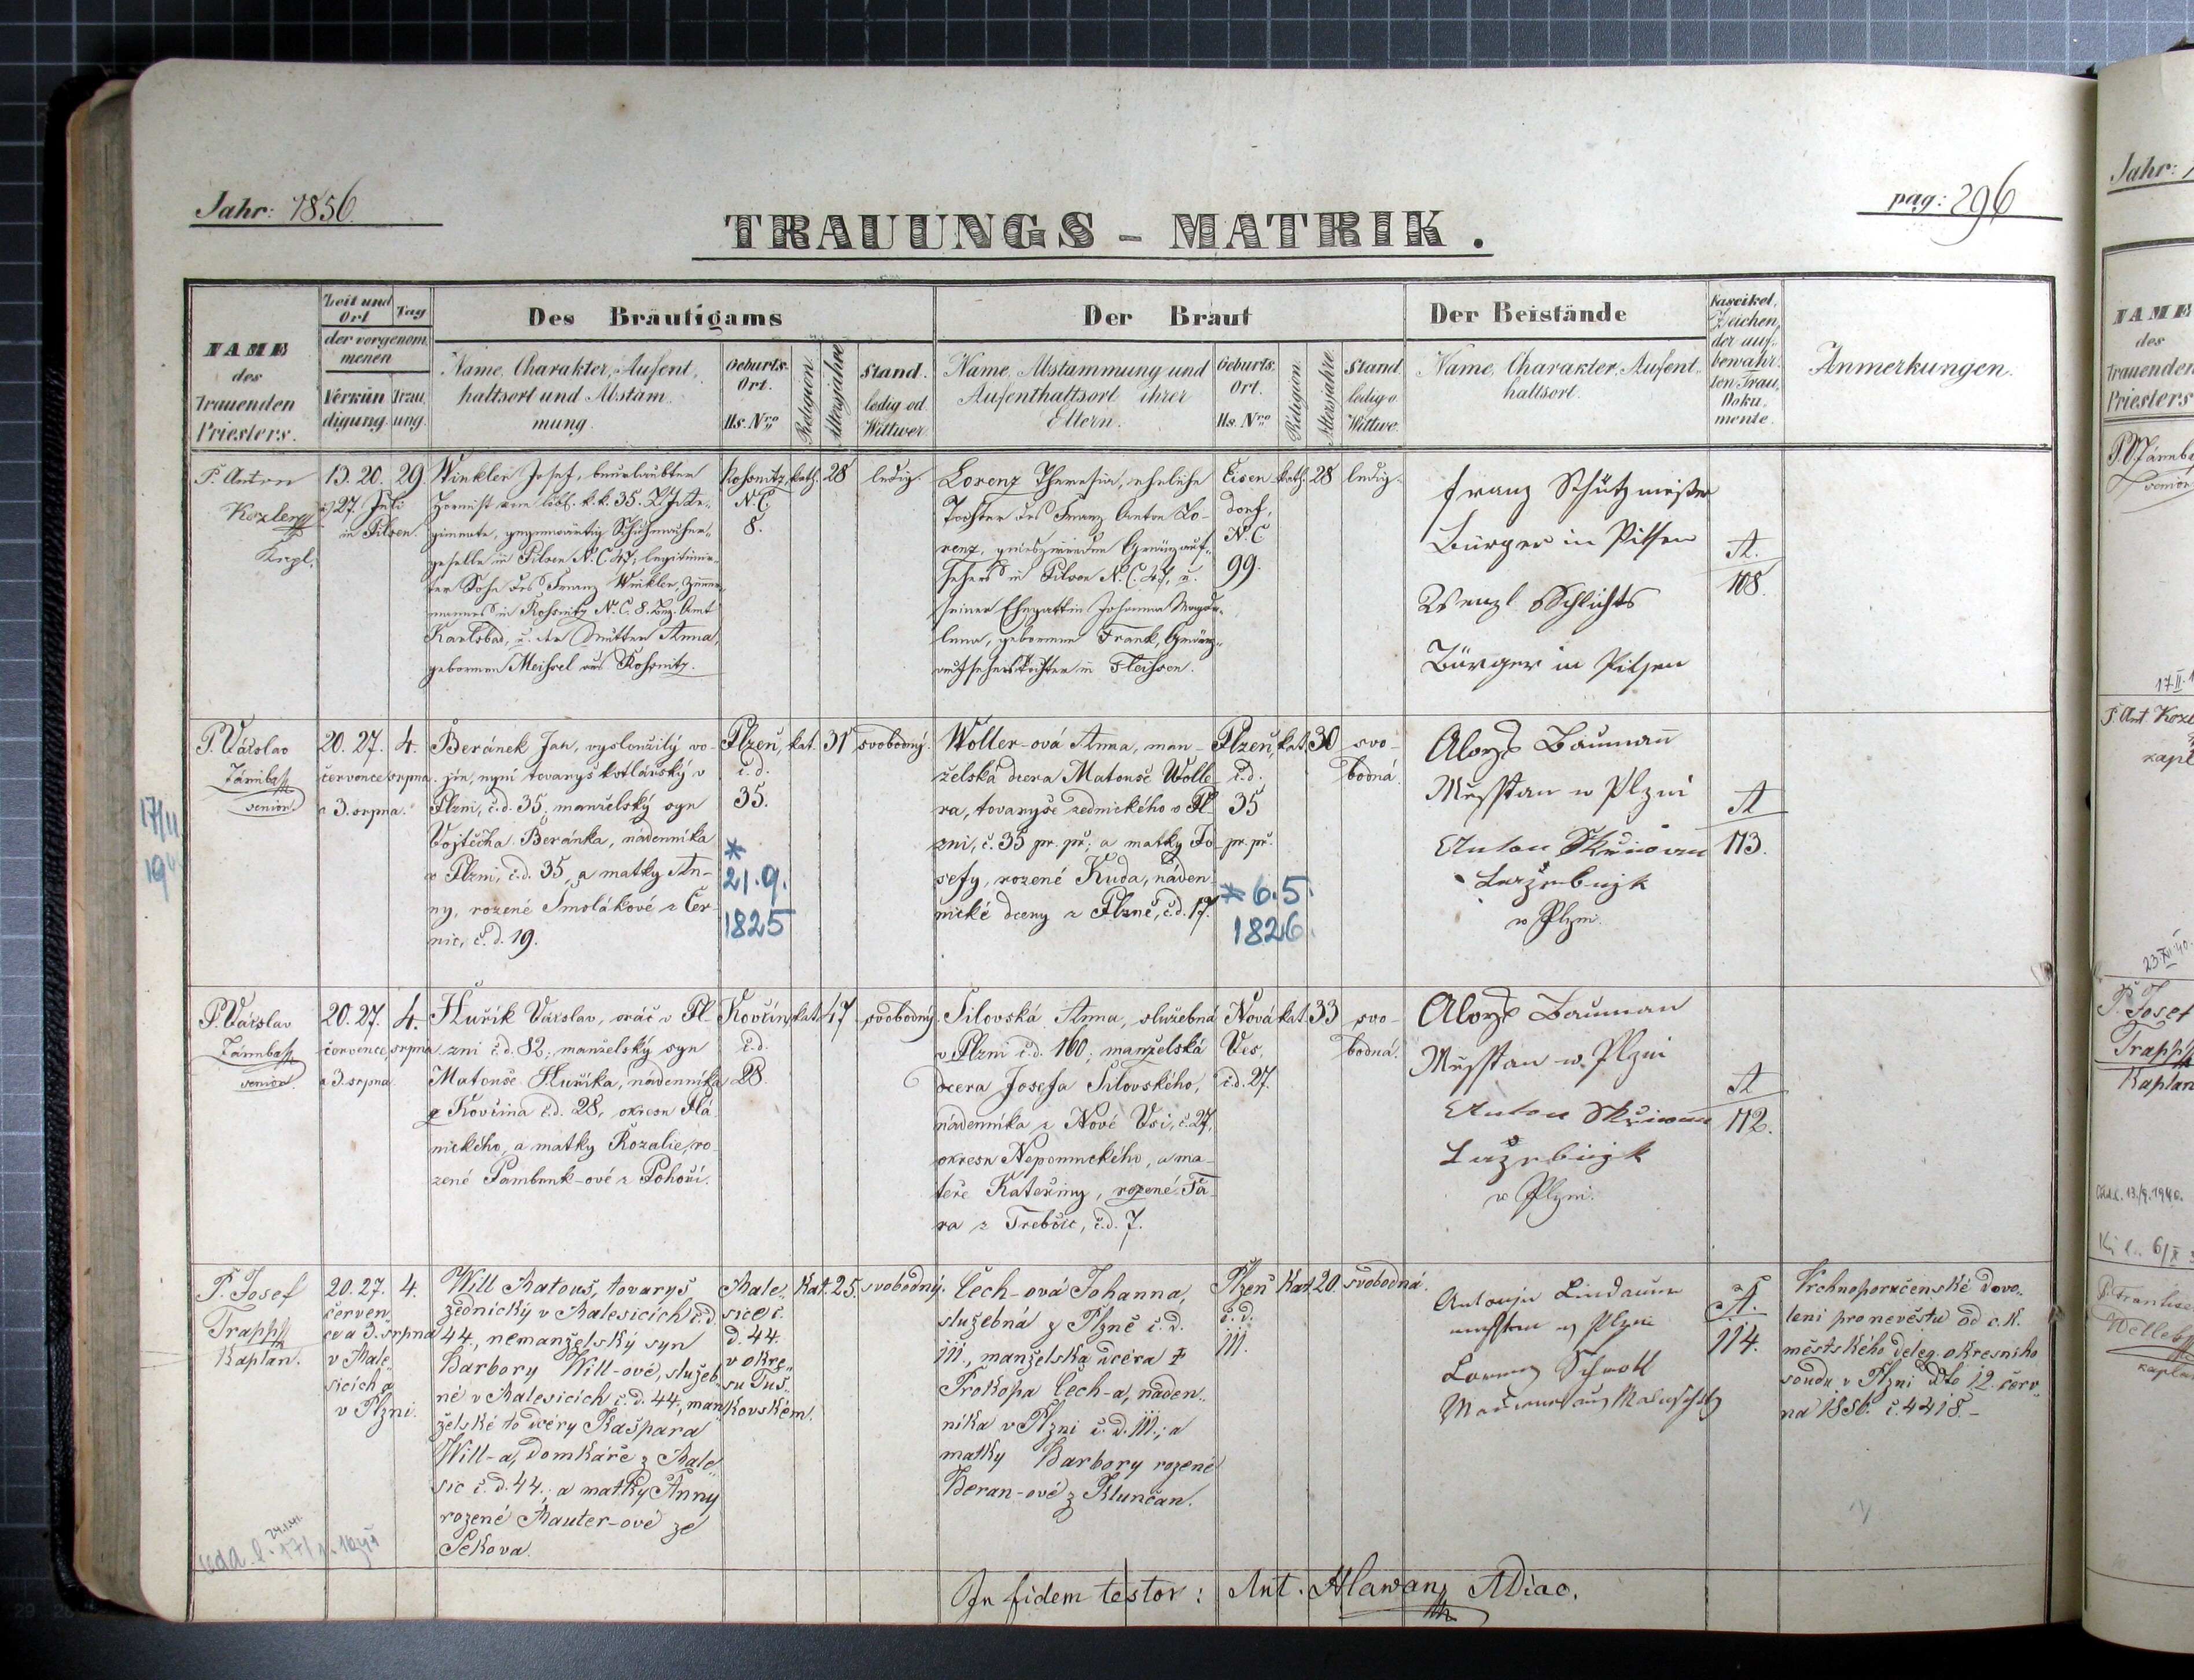 Jahr: 1856.
pag: 296
TRAUUNGS - MATRIK.
NAME
des
Trauenden
Priesters.
Zeit und
Ort
Tag
der vorgenom
menen
Verkün
digung
Trau
ung.
Des Bräutigams
Name, Charakter, Aufent,
haltsort und Abstam
mung.
Geburts.
Ort.
Hs. Nro
Religion.
Altersjahre
Stand.
ledig od.
Wittwer
Der Braut
Name, Abstammung und
Aufenthaltsort ihrer
Eltern.
Geburts.
Ort.
Hs. Nro
Religion.
Altersjahre.
Stand
ledig o
Wittwe.
Der Beistände
Name, Charakter, Aufent
haltsort.
Fascikel,
Zeichen,
der auf
bewahr
ten Trau,
Doku
mente.
Anmerkungen.
P. Anton
Kozler
Kapl.
13. 20.
27. Juli
in Pilsen.
29.
Winkler Josef, beurlaubter
Hornist vom löbl. k.k. 35. L. Inf. Re-
gimente, gegenwärtig Schuhmacher-
geselle in Pilsen N.C. 47, legitimir-
ter Sohn des Franz Winkler, Zimmer-
mannes in Rossnitz N.C. 8. Bez. Amt
Karlsbad, u. der Mutter Anna,
geborenen Meissel aus Rossnitz.
Rossnitz,
N.C.
8.
kath.
28
ledig.
Lorenz Theresia, eheliche
Tochter des Franz Anton Lo-
renz, gewesener Gränzauf-
sehers in Pilsen N.C. 47, u.
seiner Ehegattin Johanna Magda-
lena, geborenen Frank, Gränz-
aufseherstochter in Fleissen.
Eisen
dorf,
N.C
99.
kath.
28
ledig.
Franz Schützmeister
Bürger in Pilsen
Wenzl Schlichts
Bürger in Pilsen
A.
108.
P. Václav
Zárnba
senior.
20. 27.
července
a 3. srpna.
4.
srpna.
Beránek Jan, vysloužilý vo-
jín, nyní tovaryš kotlářský v
Plzni, č.d. 35, manželský syn
Vojtěcha Beránka, nádenníka
v Plzni, č.d. 35, a matky An-
ny, rozené Smolákové z Čer-
nic, č.d. 19.
Plzeň,
č.d.
35.
*
21.9.
1825
kat.
31
svobodný.
Woller-ová Anna, man-
želská dcera Matouše Wolle-
ra, tovaryše zednického v Pl-
zni, č. 35 pr. př; a matky Jo-
sefy, rozené Kuda, náden-
nické dcery z Plzně, č.d. 17.
Plzeň,
č.d.
35
pr. př.
* 6.5.
1826.
kat.
30
svo-
bodná.
Aloys Baumann
Messtan w Plzni
Anton
Lazebnjk
w Plzni.
A
113.
17/11
P. Václav
Zárnba
senior.
20. 27.
července
a 3. srpna
4.
srpna
Huřík Václav, oráč v Pl-
zni č.d. 82; manželský syn
Matouše Huříka, nádenníka
z Kovčína č.d. 28, okresu Plá-
nického, a matky Rozalie, ro-
zené Pambuk-ové z Pohoří.
Kovčín,
č.d.
28.
kat.
47
svobodný.
Šilovská Anna, služebná
v Plzni č.d. 160; manželská
dcera Josefa Šilovského,
nádenníka z Nové Vsi, č. 27,
okresu Nepomuckého, a ma-
teře Kateřiny, rozené Fá-
ra z Třebčic, č.d. 7.
Nová
Ves,
č.d. 27.
kat.
33
svo-
bodná.
Aloys Bauman
Messtan w Plzni
Anton
Lazebnjk
w Plzni.
A
112.
P. Josef
Trapp
Kaplan.
20. 27.
červen
ce a 3. srpna
v Male-
sicích a
v Plzni.
4.
Will Matouš, tovaryš
zednický v Malesicích č.d.
44., nemanželský syn
Barbory Will-ové, služeb-
né v Malesicích č.d. 44., man-
želské to dcery Kašpara
Will-a, domkáře z Male-
sic č.d. 44., a matky Anny
rozené Mauter-ové ze
Sekova.
Male-
sice č.
d. 44.
v okre-
su Tuš-
kovském.
Kat.
25.
svobodný.
Čech-ová Johanna,
služebná z Plzně č.d.
111., manželská dcéra †
Prokopa Čech-a, náden-
níka v Plzni č.d. 111.; a
matky Barbory rozené
Beran-ové z Klunčan.
Plzeň
č.d.
111.
Kat.
20.
svobodná.
Antonjn Lindauer
messtan z Plzni
Lorenz Schmoll
Maurer aus Maleschitz
A.
114.
Vrchnoporučenské dovo-
lení pro nevěstu od c.k.
městského deleg. okresního
soudu v Plzni dto 12. červ-
na 1856. č. 4418.-
24.1.41.
In fidem testor: Ant. Hlawan, ADiac.
Jahr: 1
NAME
des
Trauenden
Priesters
senior
17.II.1
P. Ant. Kozl
kapl
23.XII.40.
P. Josef
Trapp
Kaplan
13./9.1940.
kaplan